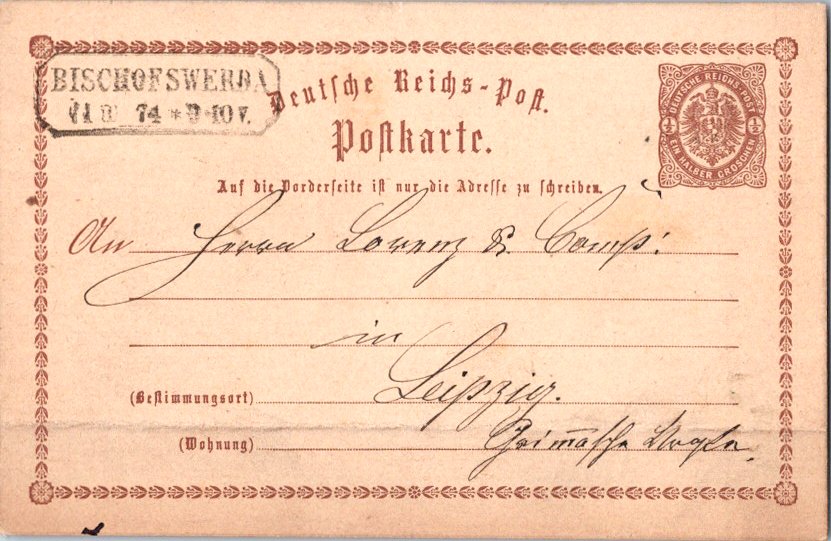 BISCHOFSWERDA
74 * 9-10 V.
Deutsche Reichs-Post.
Postkarte.
DEUTSCHE REICHS-POST
½ ½
EIN HALBER GROSCHEN
Auf die Vorderseite ist nur die Adresse zu schreiben.
An Herrn Lorenz & Comp:
in
(Bestimmungsort) Leipzig.
(Wohnung)